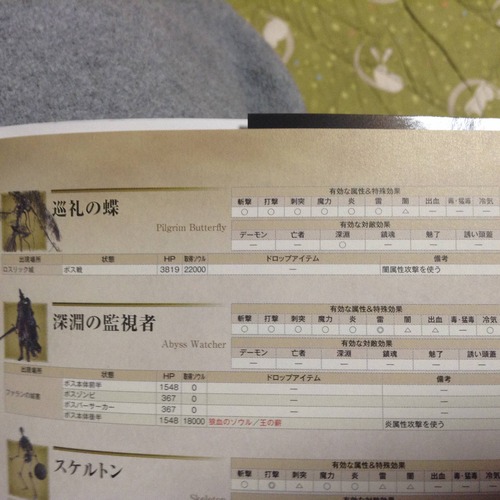 巡礼の蝶
Pilgrim Butterfly
有効な属性&特殊効果
斬撃 打撃 刺突 魔力 炎 雷 闇 出血 毒・猛毒 冷気
○ ○ ○ ○ ○ ○ △ — — ○
有効な対敵効果
デーモン 亡者 深淵 鎮魂 魅了 誘い頭蓋
— — ○ — — —
出現場所 状態 HP 取得ソウル ドロップアイテム 備考
ロスリック城 ボス戦 3819 22000 — 闇属性攻撃を使う
深淵の監視者
Abyss Watcher
有効な属性&特殊効果
斬撃 打撃 刺突 魔力 炎 雷 闇 出血 毒・猛毒 冷気
○ ○ ○ ○ ○ ◎ △ △ — ○
有効な対敵効果
デーモン 亡者 深淵 鎮魂 魅了 誘い頭蓋
— — ○ — — —
出現場所 状態 HP 取得ソウル ドロップアイテム 備考
ファランの城塞
ボス本体前半 1548 0 —
ボスゾンビ 367 0 —
ボスバーサーカー 367 0 —
ボス本体後半 1548 18000 狼血のソウル/王の薪 炎属性攻撃を使う
スケルトン
Skeleton
有効な属性&特殊効果
斬撃 打撃 刺突 魔力 炎 雷 闇 出血 毒・猛毒 冷気
○ ◎ △ ○ ○ △ △ — —
有効な対敵効果